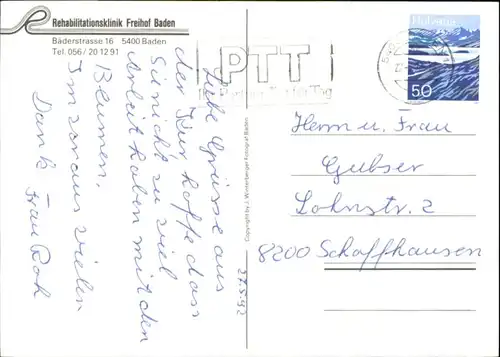 Rehabilitationsklinik Freihof Baden
Bäderstrasse 16 5400 Baden
Tel. 056 / 20 12 91
Liebe Grüsse aus
der Kur, hoffe dass
Sie nicht zu viel
Arbeit haben mit den
Blumen.
Im voraus vielen
Dank Frau Roh
27.5.92
Copyright by J. Winterberger Fotograf Baden
PTT
Helvetia
50
Herrn u. Frau
Gubser
Lohnstr. 2
8200 Schaffhausen